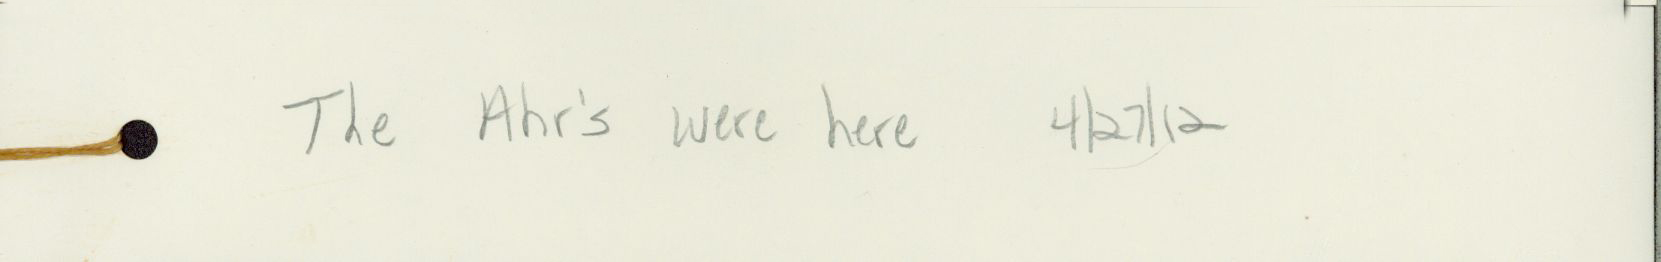 The Ahr's were here 4/27/12